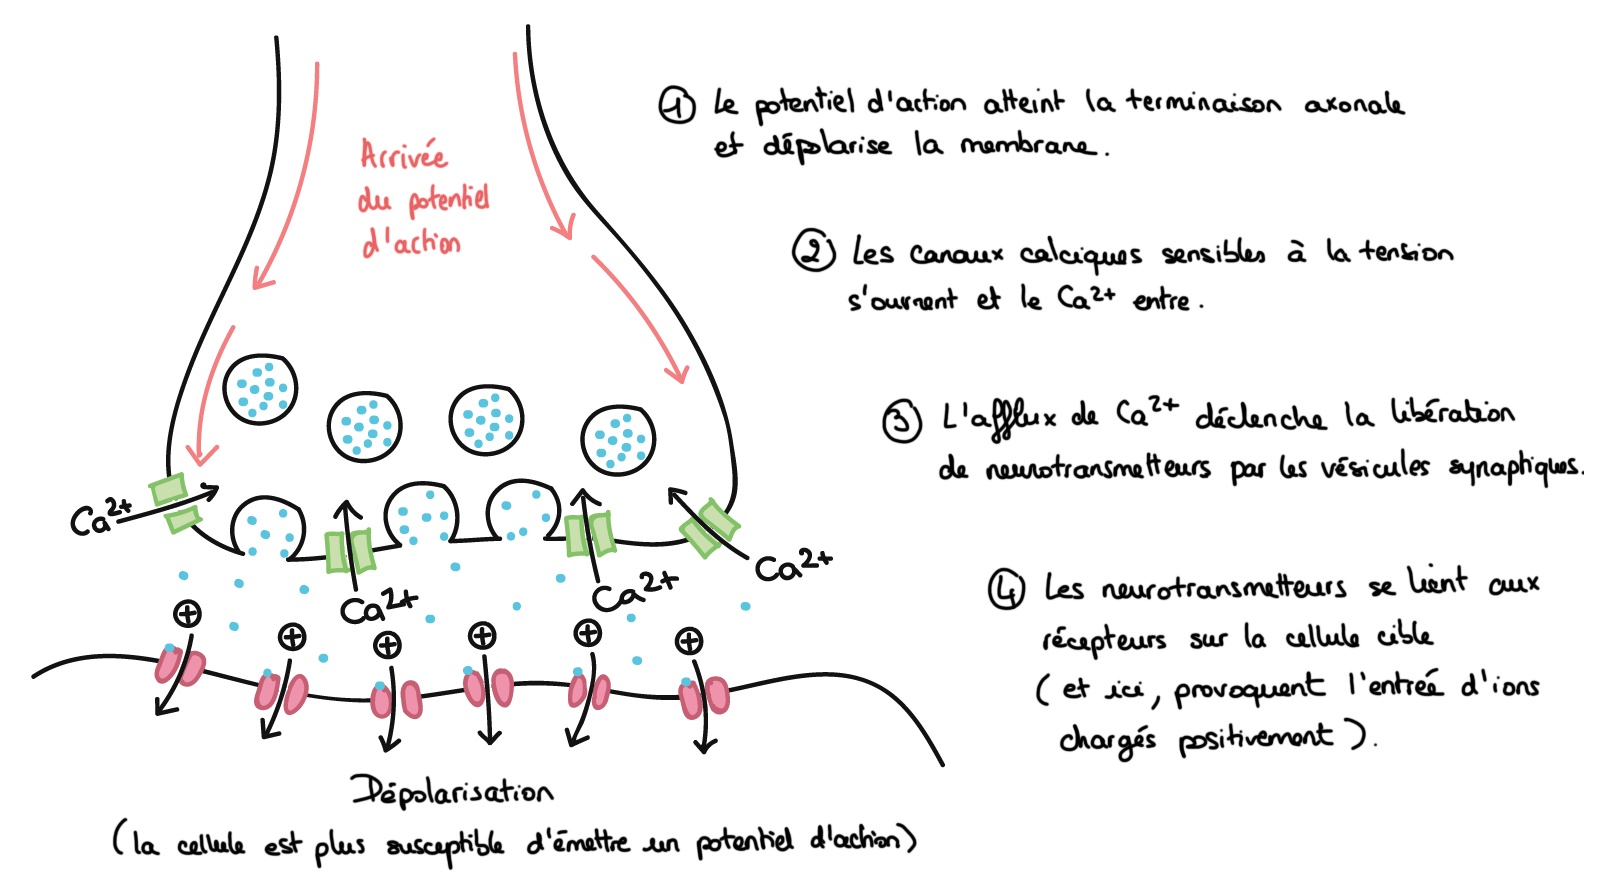 Arrivée
du potentiel
d'action
① Le potentiel d'action atteint la terminaison axonale
et dépolarise la membrane.
② Les canaux calciques sensibles à la tension
s'ouvrent et le Ca²⁺ entre.
③ L'afflux de Ca²⁺ déclenche la libération
de neurotransmetteurs par les vésicules synaptiques.
④ Les neurotransmetteurs se lient aux
récepteurs sur la cellule cible
(et ici, provoquent l'entrée d'ions
chargés positivement).
Ca²⁺
Ca²⁺
Ca²⁺
Ca²⁺
+
+
+
+
+
+
Dépolarisation
(la cellule est plus susceptible d'émettre un potentiel d'action)